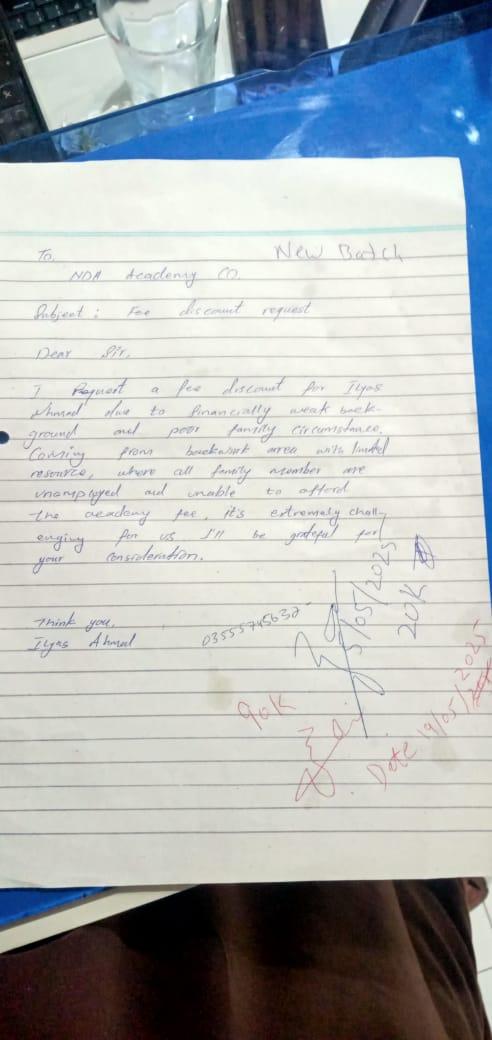 New Batch
To,
NDA Academy CO.
Subject : Fee discount request
Dear Sir,
I Request a fee discount for Ilyas
Ahmed due to financially weak back-
ground and poor family circumstance.
Coming from backwork area with limited
resource, where all family member are
unamployed and unable to afford
the academy fee, it's extremely chall-
enging for us I'll be grateful for
your consideration.
Think you,
Ilyas Ahmed
03555745632
5/05/2025
20K
90K
Date 19/05/2025